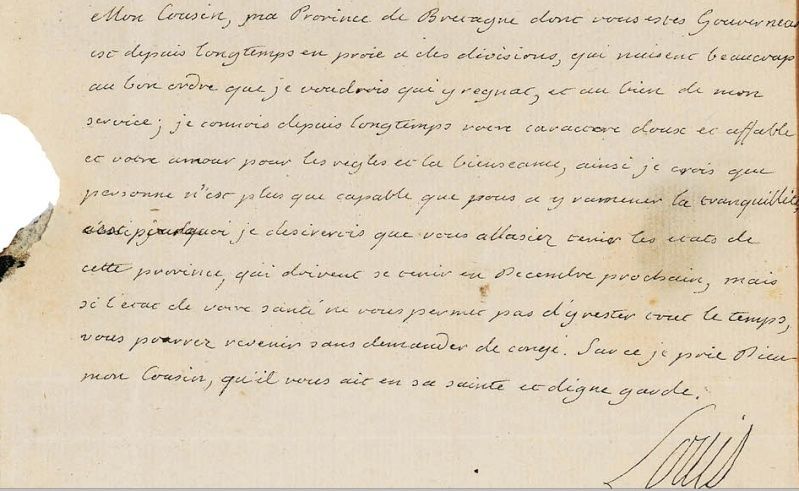 Mon Cousin, ma Province de Bretagne dont vous estes Gouverneur
est depuis longtemps en proie a des divisions, qui nuisent beaucoup
au bon ordre que je voudrois qui y regnat, et au bien de mon
service; je connois depuis longtemps votre caractere doux et affable
et votre amour pour les regles et la bienseance, ainsi je crois que
personne n'est plus que capable que vous a y ramener la tranquillité,
c'est pourquoi je desirerois que vous allasiez tenir les etats de
cette province, qui doivent se tenir en Decembre prochain, mais
si l'etat de votre santé ne vous permet pas d'y rester tout le temps,
vous pourrez revenir sans demander de congé. Sur ce je prie Dieu
mon Cousin, qu'il vous ait en sa sainte et digne garde.
Louis